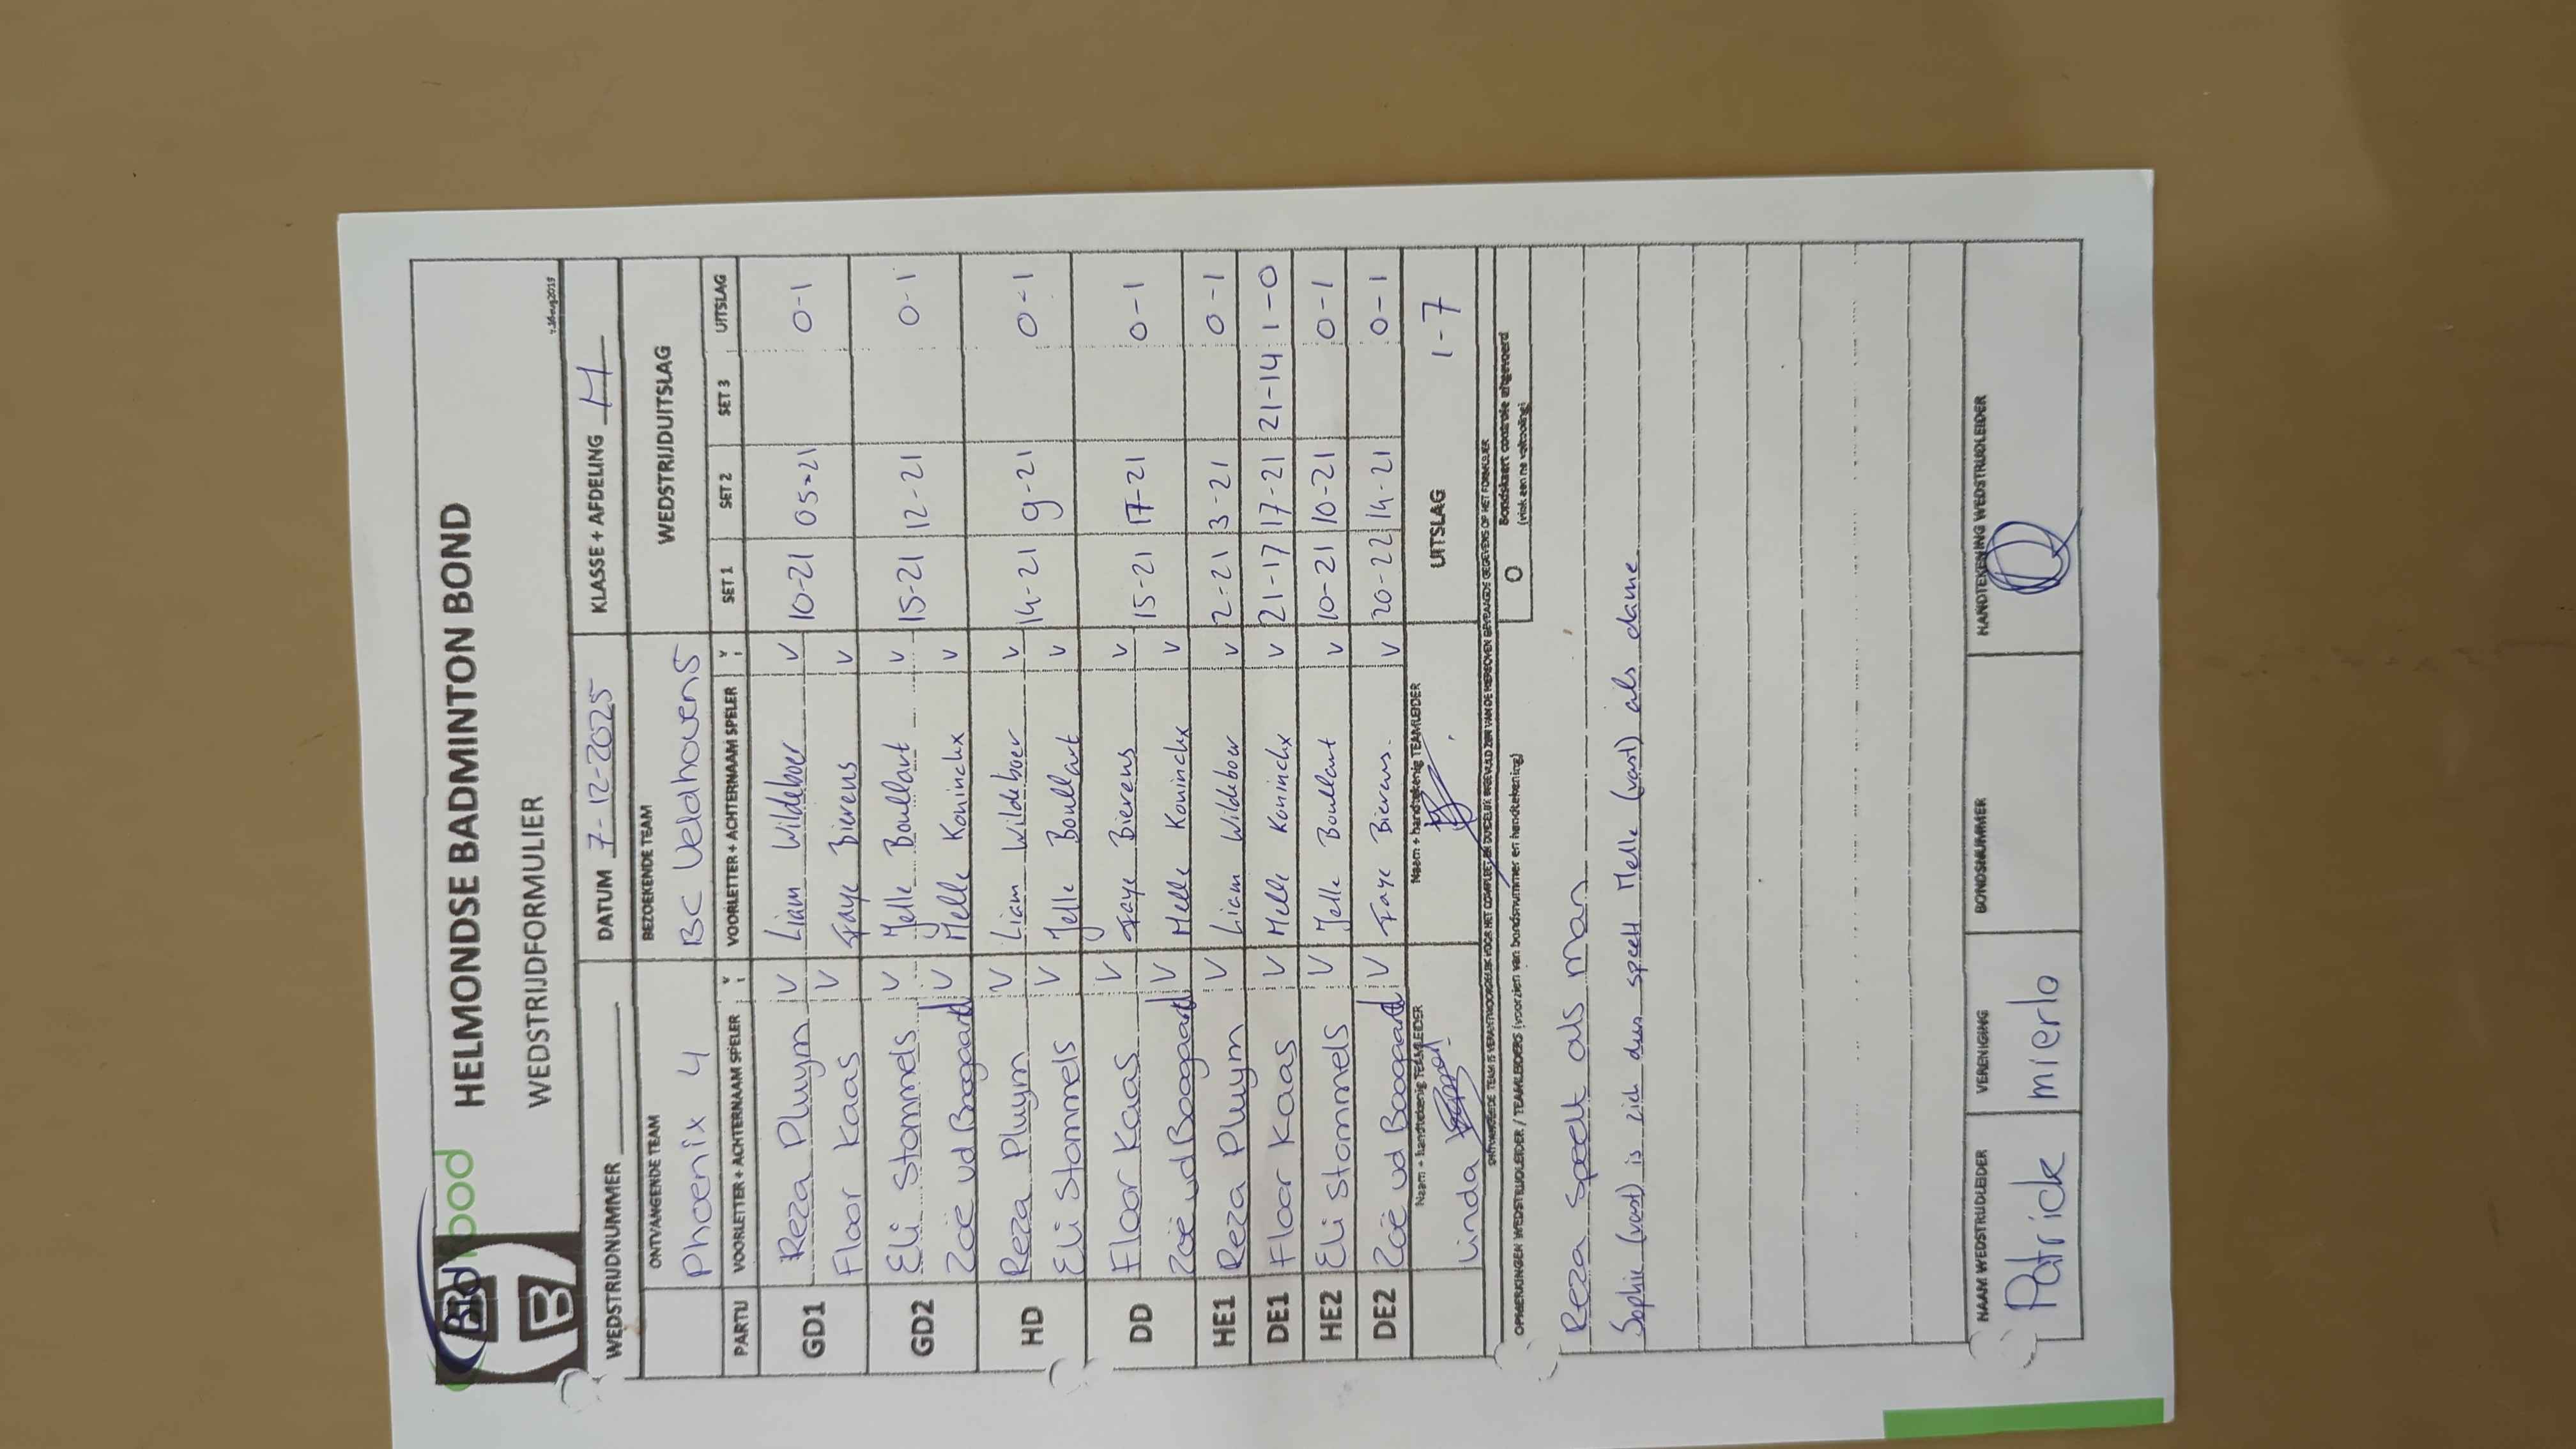 Bidfood
HELMONDSE BADMINTON BOND
WEDSTRIJDFORMULIER
WEDSTRIJDNUMMER DATUM 7-12-2025 KLASSE + AFDELING H
ONTVANGENDE TEAM BEZOEKENDE TEAM WEDSTRIJDUITSLAG
Phoenix 4 BC Veldhoven 5
PARTIJ VOORLETTER + ACHTERNAAM SPELER VOORLETTER + ACHTERNAAM SPELER SET 1 SET 2 SET 3 UITSLAG
GD1 Reza Pluym V Liam Wildeboer V 10-21 05-21 0-1
Floor Kaas V Faye Bierens V
GD2 Eli Stommels V Jelle Boullart V 15-21 12-21 0-1
Zoë vd Boogaard V Melle Koninckx V
HD Reza Pluym V Liam Wildeboer V 14-21 9-21 0-1
Eli Stommels V Jelle Boullart V
DD Floor Kaas V Faye Bierens V 15-21 17-21 0-1
Zoë vd Boogaard V Melle Koninckx V
HE1 Reza Pluym V Liam Wildeboer V 2-21 3-21 0-1
DE1 Floor Kaas V Melle Koninckx V 21-17 17-21 21-14 1-0
HE2 Eli Stommels V Jelle Boullart V 10-21 10-21 0-1
DE2 Zoë vd Boogaard V Faye Bierens. V 20-22 14-21 0-1
Naam + handtekenig TEAMLEIDER Naam + handtekenig TEAMLEIDER UITSLAG 1-7
Linda
ONTVANGENDE TEAM IS VERANTWOORDELIJK VOOR HET COMPLEET EN DUIDELIJK INGEVULD ZIJN VAN DE HIERBOVEN GEVRAAGDE GEGEVENS OP HET FORMULIER
OPMERKINGEN WEDSTRIJDLEIDER / TEAMLEIDERS (voorzien van bondsnummer en handtekening)
O Bondskaart controle uitgevoerd
Reza speelt als man
Sophie (vast) is ziek dus speelt Melle (vast) als dame
NAAM WEDSTRIJDLEIDER VERENIGING BONDSNUMMER HANDTEKENING WEDSTRIJDLEIDER
Patrick mierlo